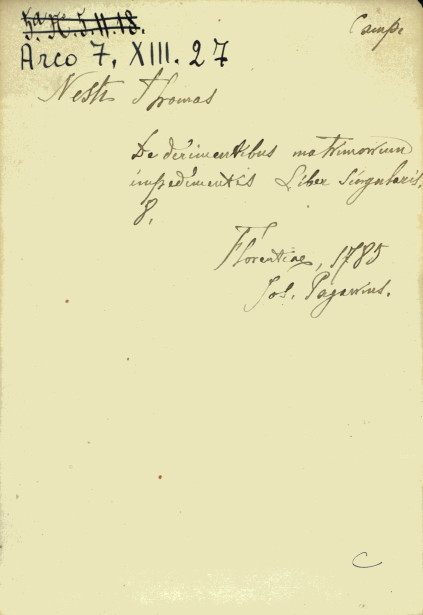 Camp.
Arco 7, XIII. 27
Thomas
De dirimentibus matrimonium
impedimentis Liber singularis.
8.
Florentiae, 1785
Jos. Paganius.
C